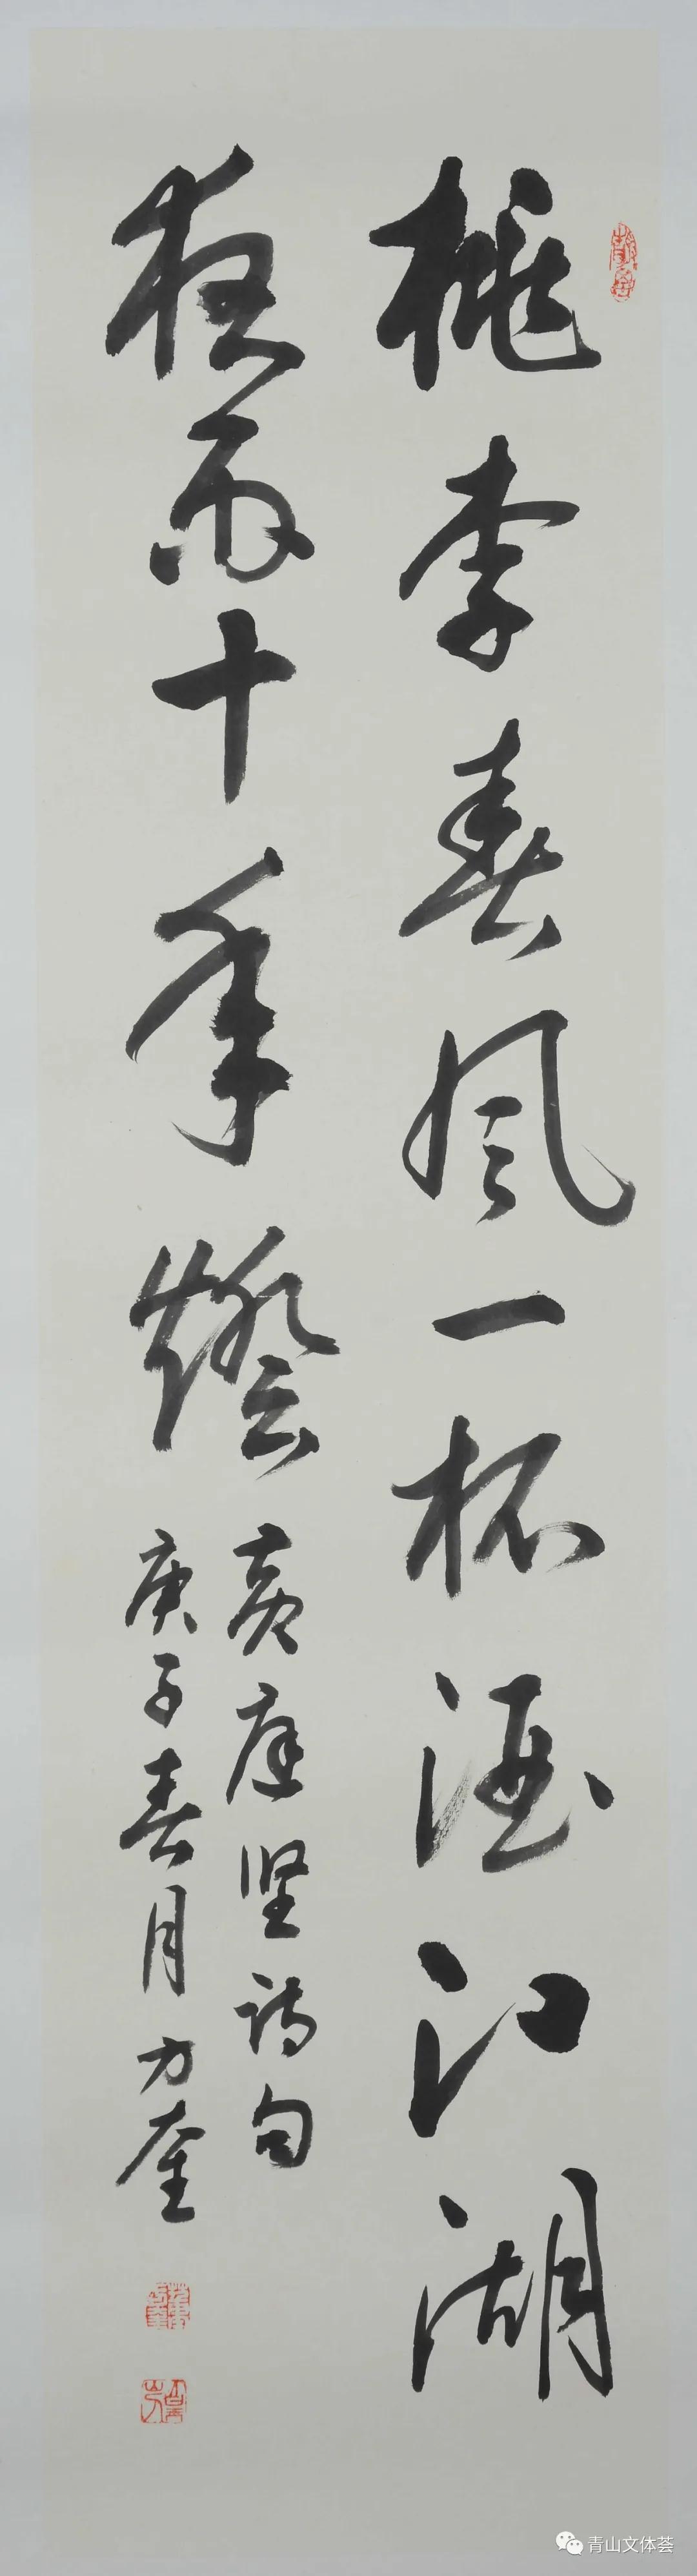 桃李春风一杯酒江湖
夜雨十年燈
黄庭坚诗句
庚子春月方奎
青山文体荟